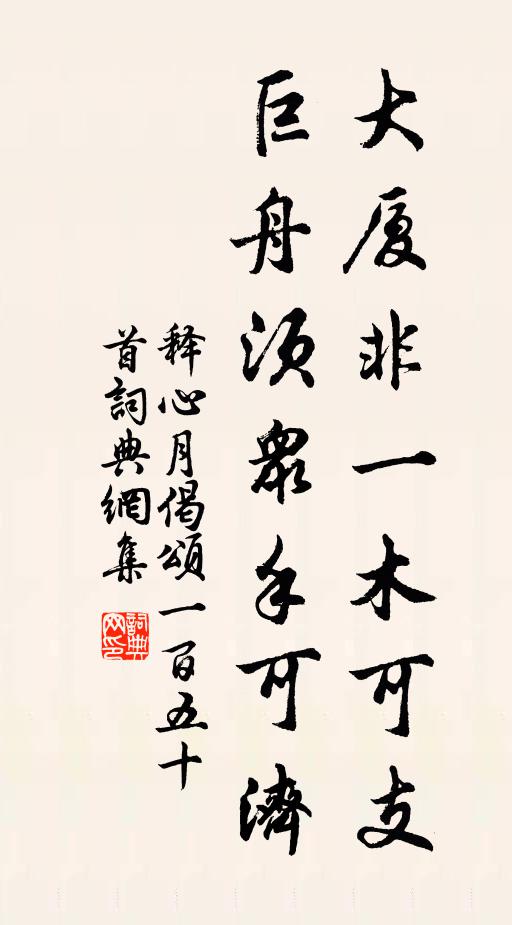 大厦非一木可支
巨舟须众手可濟
释心月偈頌一百五十
首詞典網集
詞典
网印